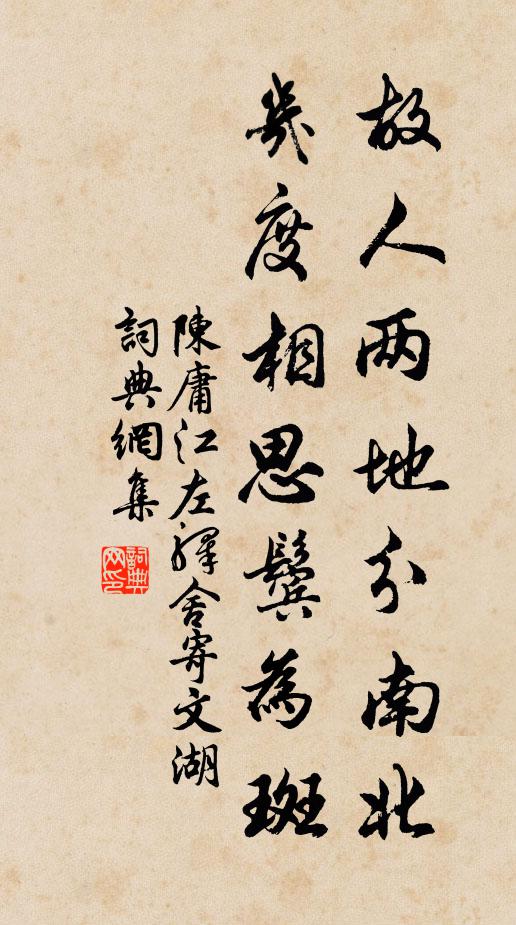 故人两地分南北
幾度相思鬢為斑
陳庸江左驛舍寄文湖
詞典網集
詞典
网印